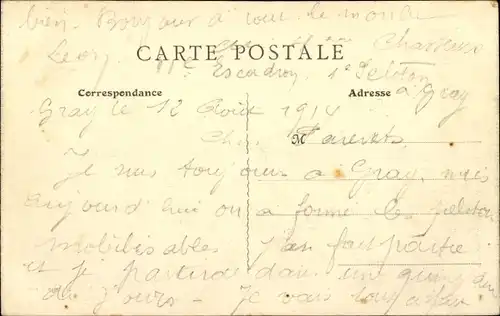 bien. Bonjour à tout le monde
Leon Chasseur
CARTE POSTALE
Escadron 1e Peloton
Correspondance
Adresse
à Gray
Gray le 12 Août 1914
Ch. Parents
M
Je suis toujours a Gray, mais
aujourd'hui on a formé les peloton
mobilisables j'en fait partie
et je partirai dans une
de jours - Je vais